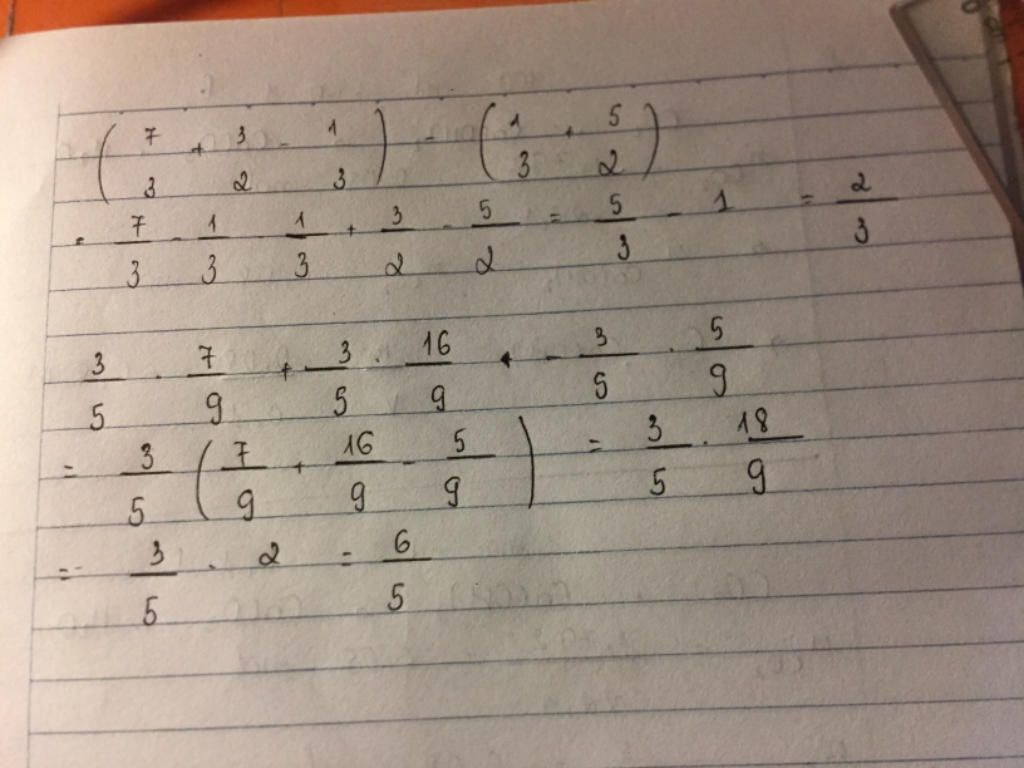 (7/3 + 3/2 - 1/3) - (1/3 + 5/2)
= 7/3 - 1/3 - 1/3 + 3/2 - 5/2 = 5/3 - 1 = 2/3
3/5 . 7/9 + 3/5 . 16/9 - 3/5 . 5/9
= 3/5 (7/9 + 16/9 - 5/9) = 3/5 . 18/9
= 3/5 . 2 = 6/5